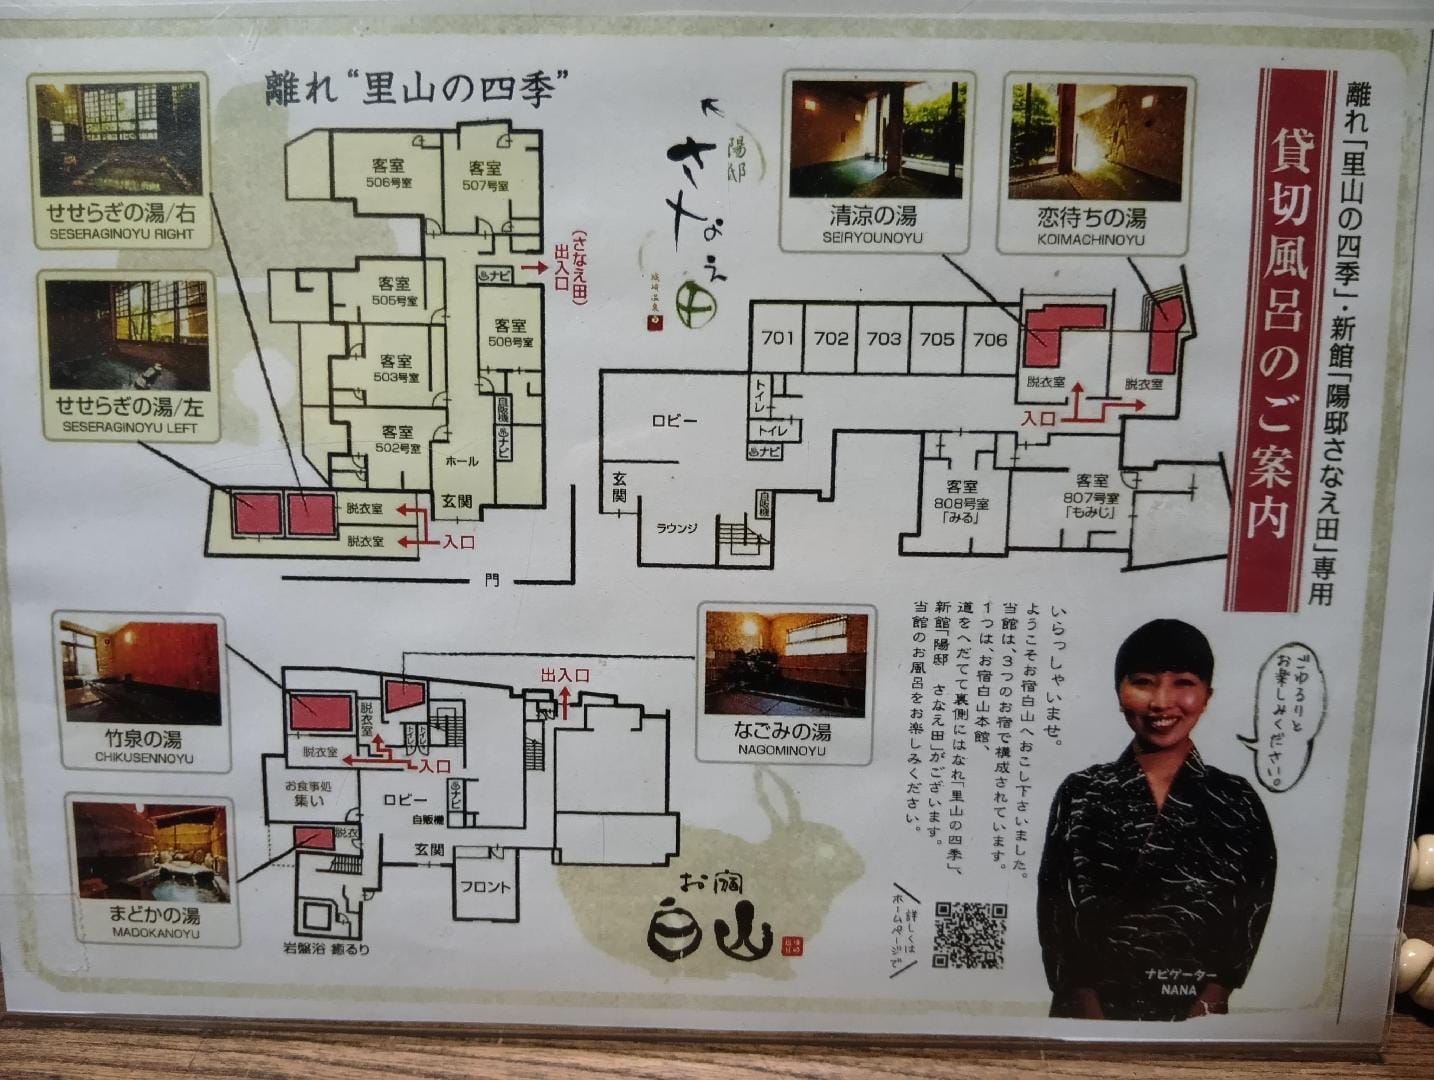 離れ「里山の四季」・新館「陽邸さなえ田」専用
貸切風呂のご案内
離れ“里山の四季”
せせらぎの湯/右
SESERAGINOYU RIGHT
せせらぎの湯/左
SESERAGINOYU LEFT
客室
506号室
客室
507号室
客室
505号室
客室
503号室
客室
502号室
客室
508号室
♨ナビ
出入口
(さなえ田)
自販機
♨ナビ
ホール
玄関
脱衣室
脱衣室
入口
門
陽邸
さなえ田
城崎温泉
清涼の湯
SEIRYOUNOYU
恋待ちの湯
KOIMACHINOYU
701
702
703
705
706
脱衣室
脱衣室
入口
ロビー
トイレ
トイレ
♨ナビ
玄関
自販機
ラウンジ
客室
808号室
「みる」
客室
807号室
「もみじ」
竹泉の湯
CHIKUSENNOYU
まどかの湯
MADOKANOYU
なごみの湯
NAGOMINOYU
出入口
脱衣室
脱衣室
トイレ
トイレ
入口
お食事処
集い
ロビー
♨ナビ
自販機
脱衣
玄関
フロント
岩盤浴 癒るり
お宿
白山
いらっしゃいませ。
ようこそお宿白山へおこし下さいました。
当館は、3つのお宿で構成されています。
1つは、お宿白山本館、
道をへだてて裏側にはなれ「里山の四季」、
新館「陽邸 さなえ田」がございます。
当館のお風呂をお楽しみください。
詳しくは
ホームページで
ごゆるりと
お楽しみください。
ナビゲーター
NANA